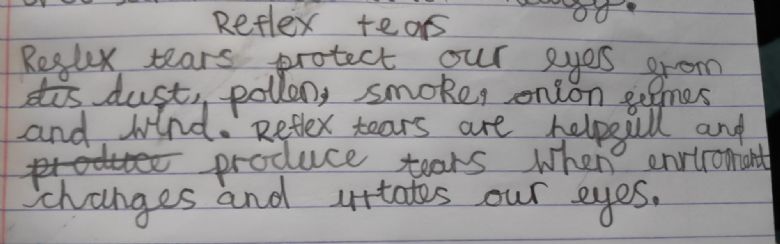 Reflex tears
Reglex tears protect our eyes grom
dis dust, pollen, smoke, onion gumes
and wind. Reflex tears are helpgull and
produce produce tears when enviroment
changes and irrtates our eyes.